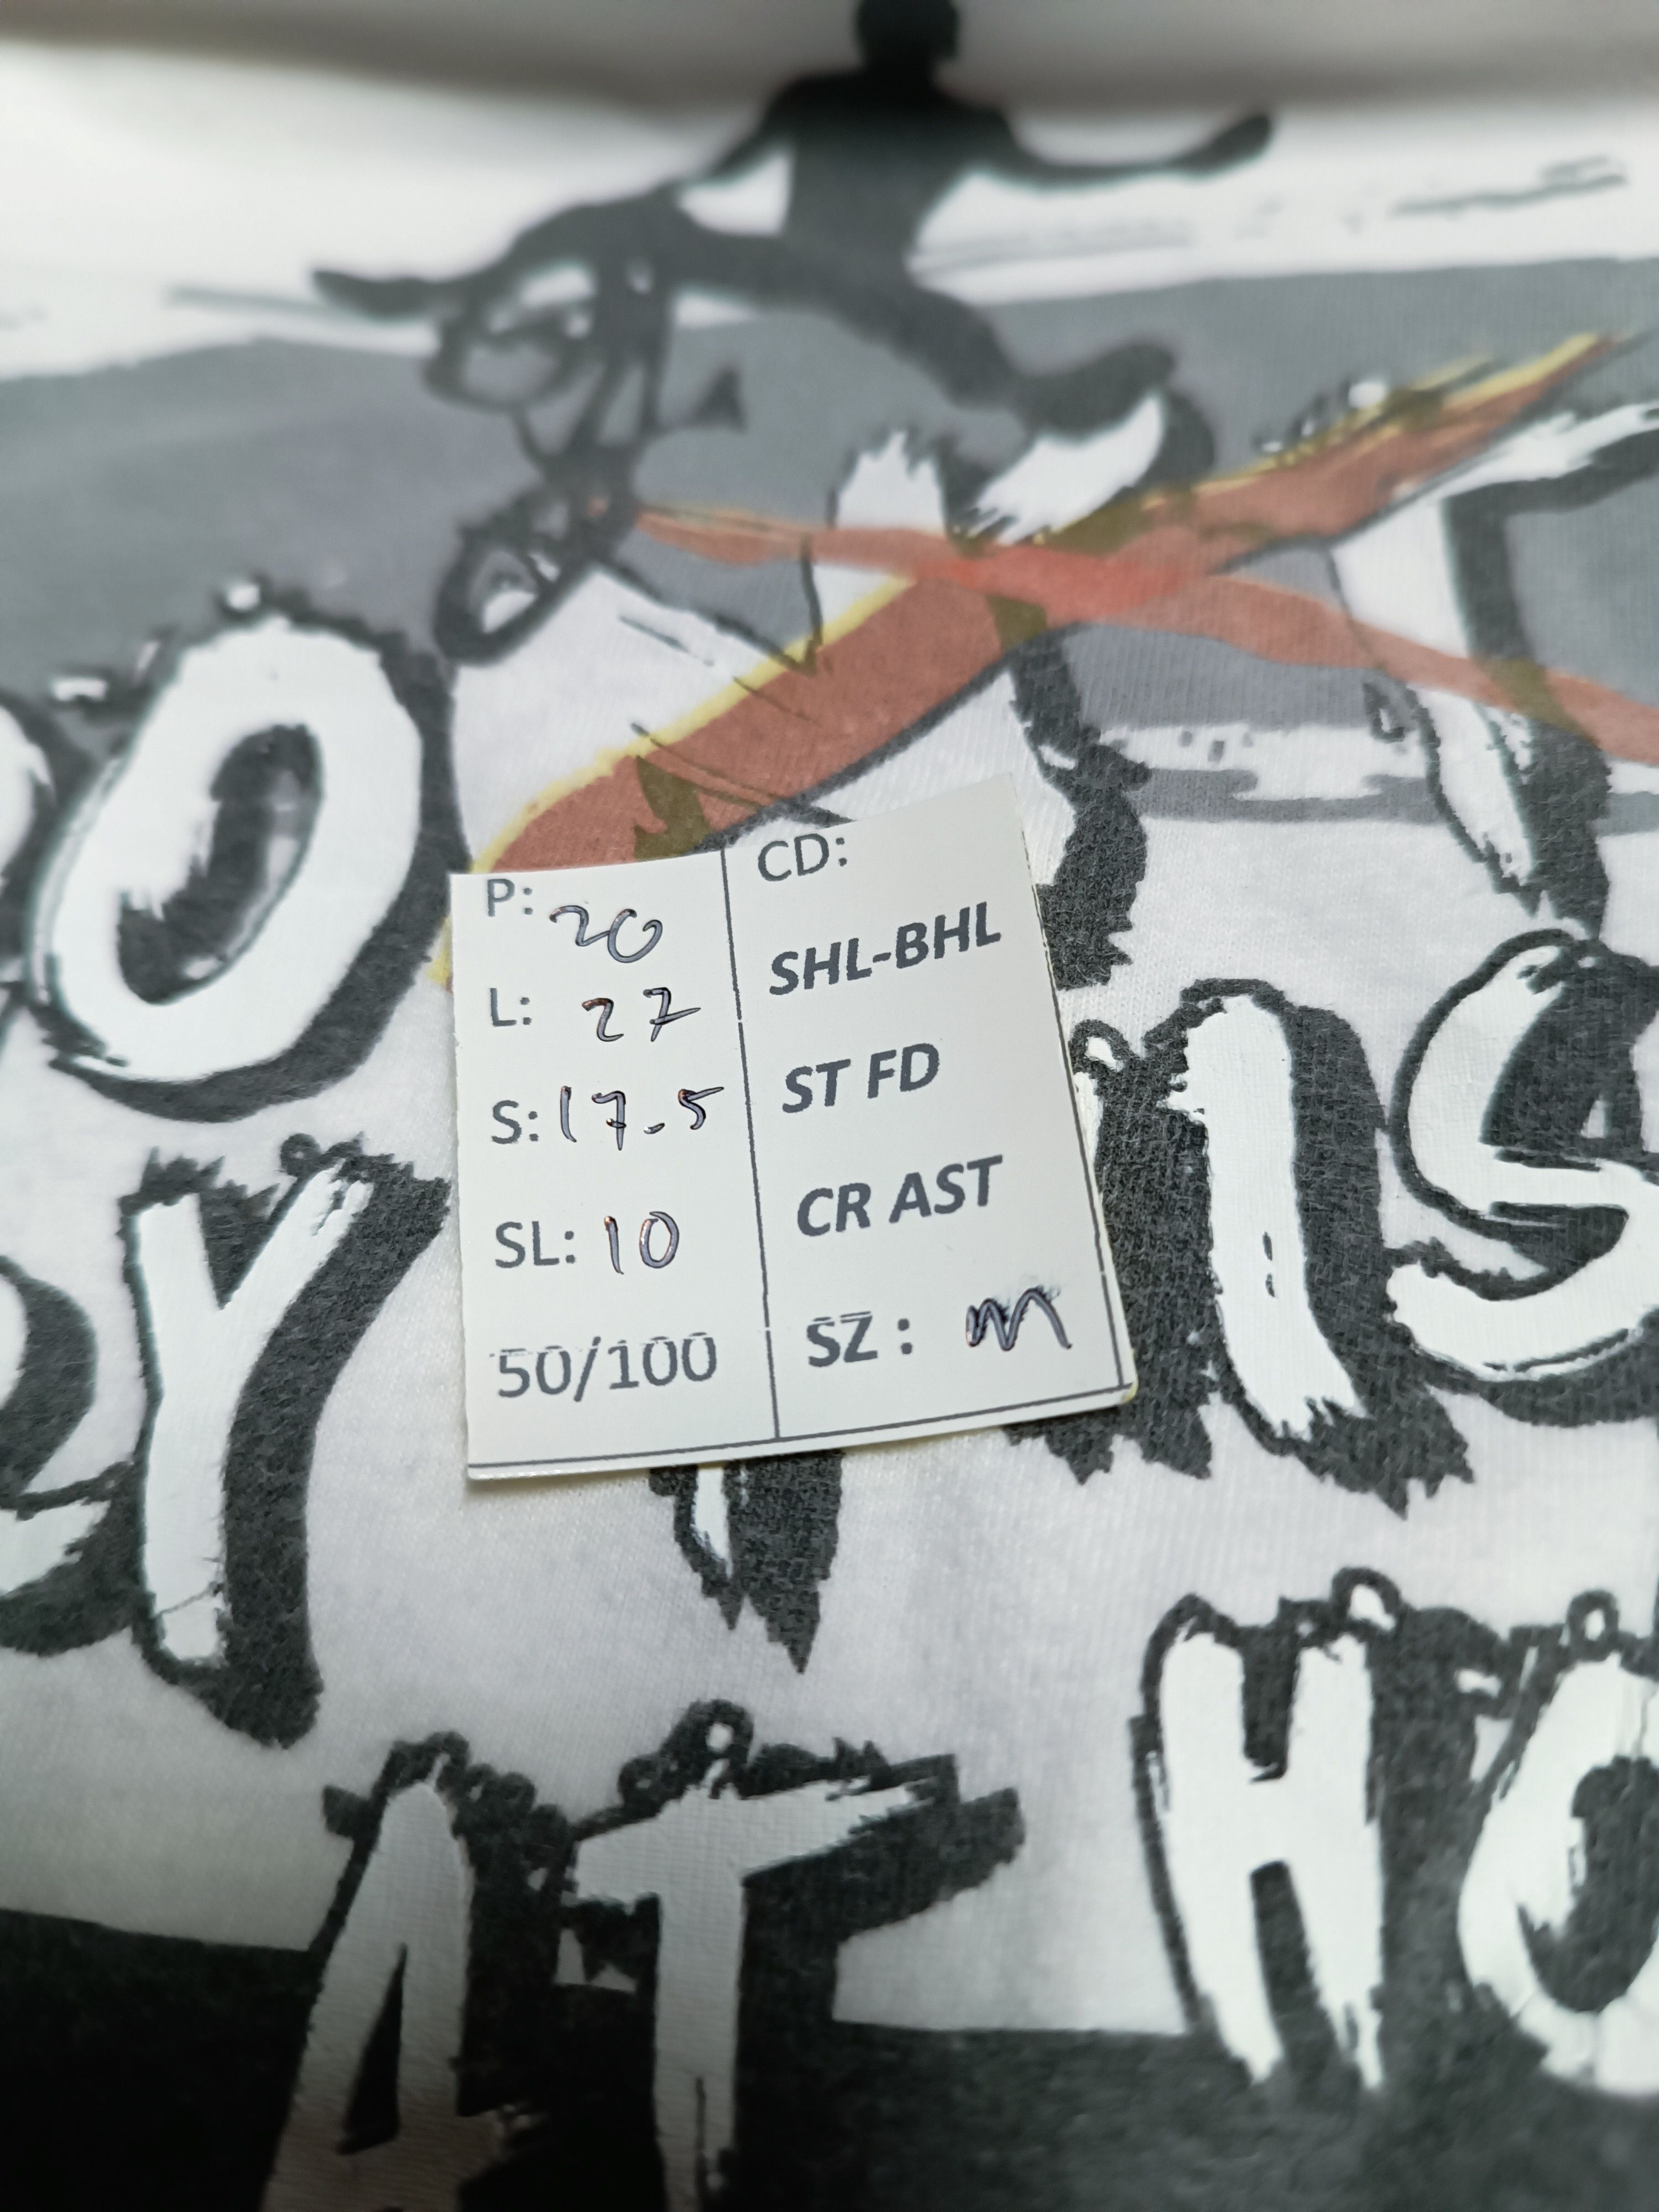 P: 20
L: 27
S: 17.5
SL: 10
50/100
CD:
SHL-BHL
ST FD
CR AST
SZ: M
IS
AT HO